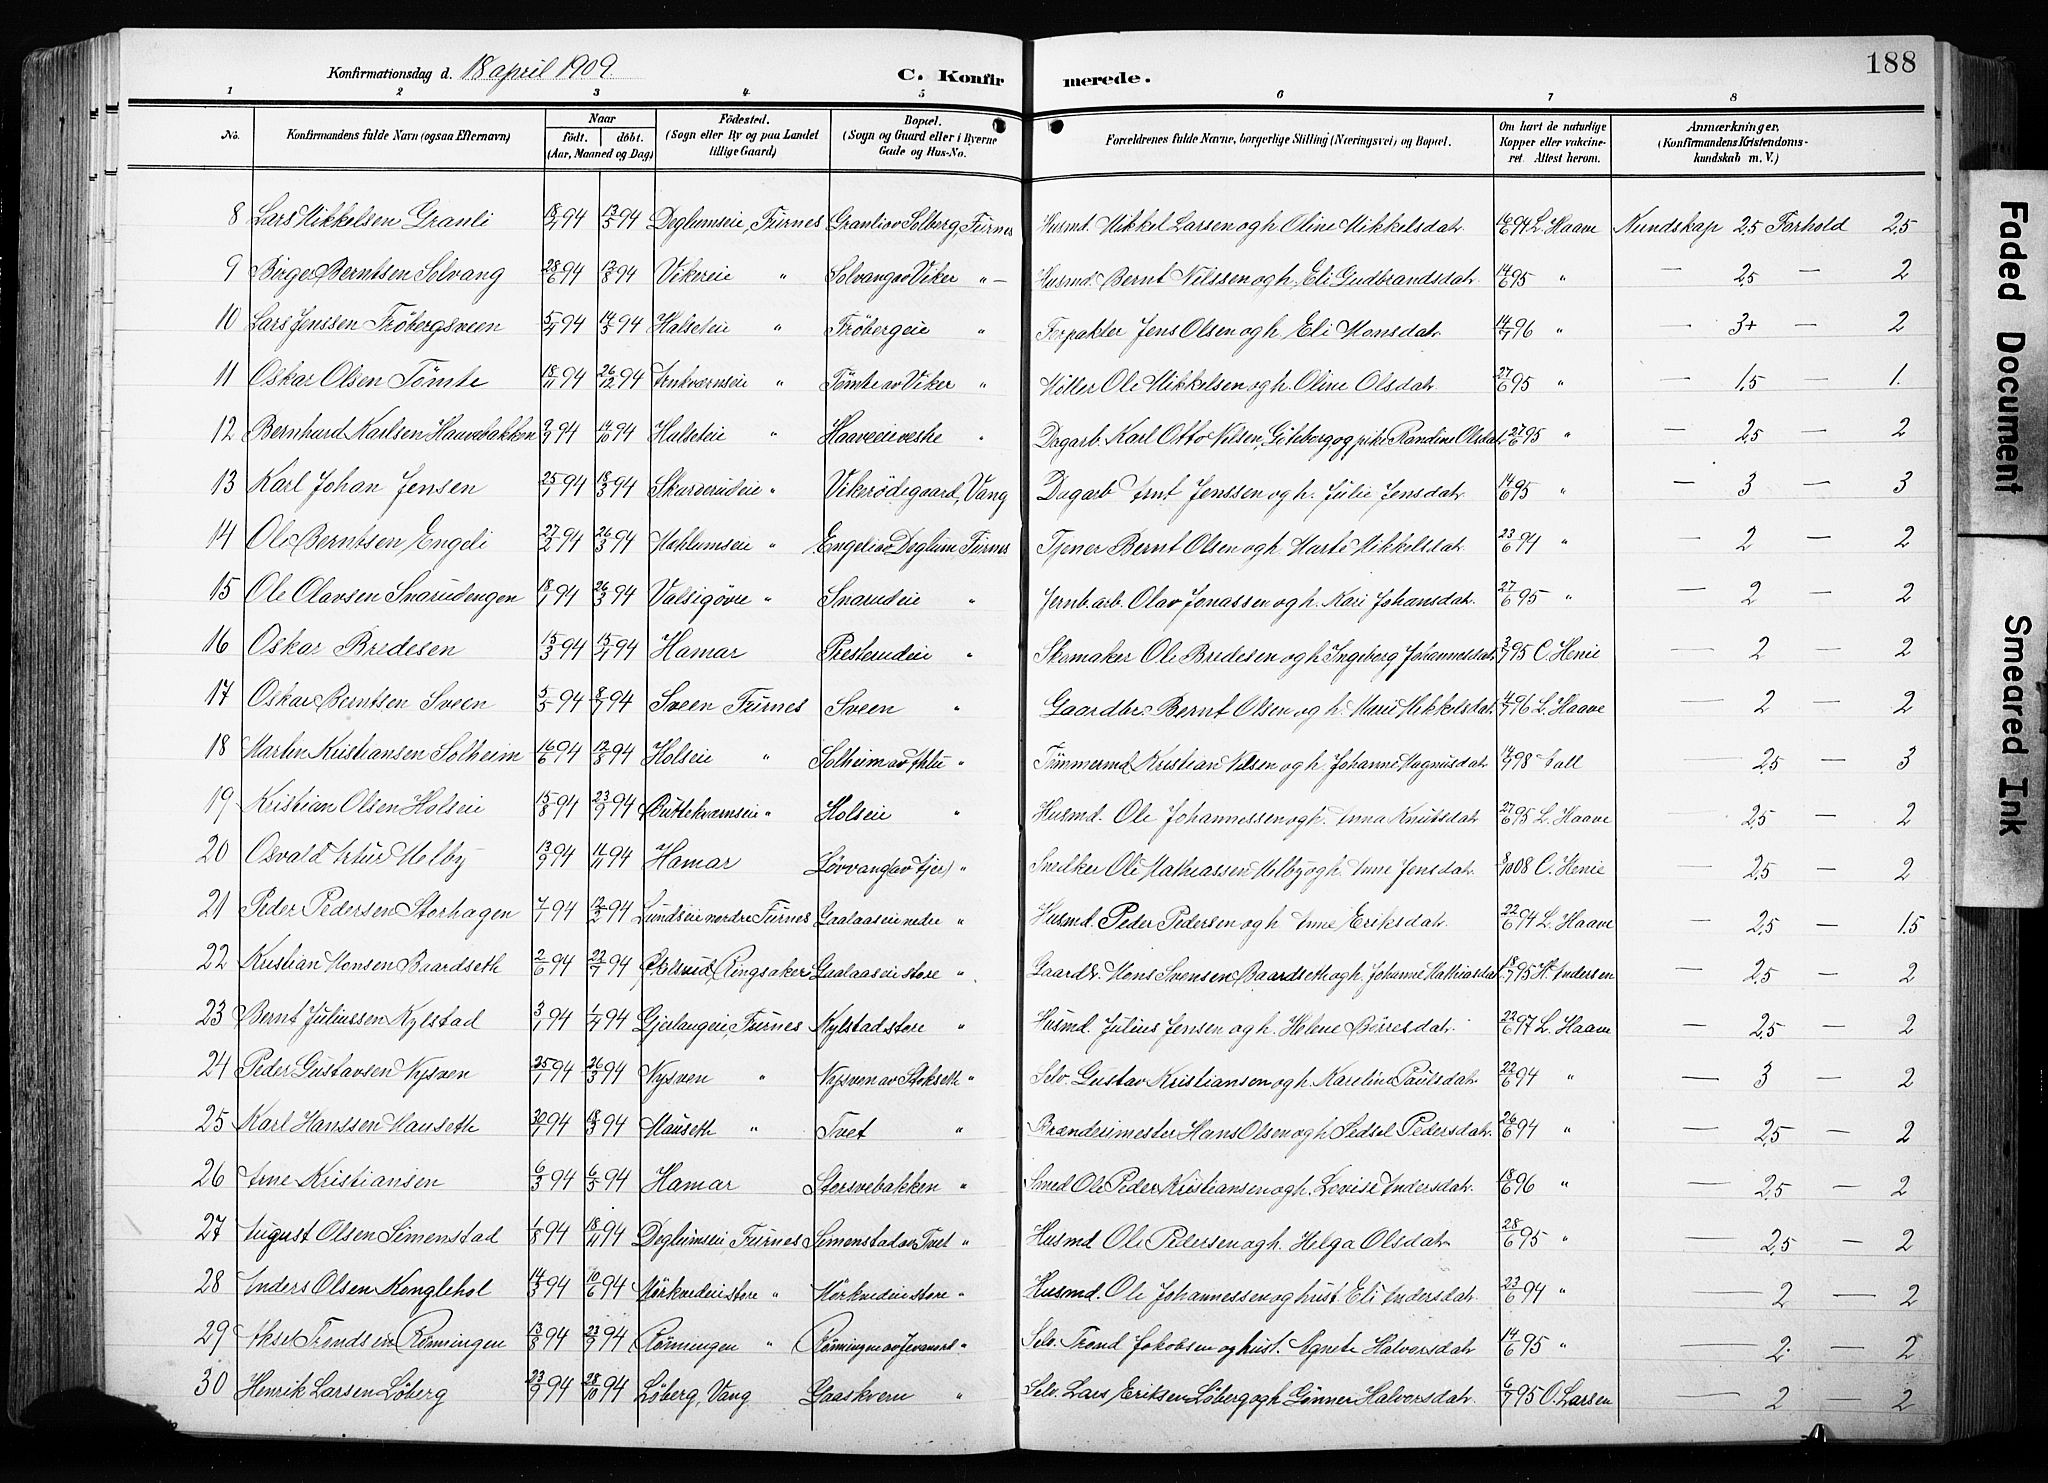 188
Konfirmationsdag d. 18 april 1909. C. Konfirmerede.
1 2 3 4 5 6 7 8
No. Konfirmandens fulde Navn (ogsaa Efternavn) Naar født. døbt. (Aar, Maaned og Dag) Fødested. (Sogn eller By og paa Landet tillige Gaard) Bopæl. (Sogn og Gaard eller i Byerne Gade og Hus-No. Forældrenes fulde Navne, borgerlige Stilling (Næringsvei) og Bopæl. Om havt de naturlige Kopper eller vakcineret. Attest herom. Anmærkninger. (Konfirmandens Kristendomskundskab m. V.)
8 Lars Mikkelsen Granli 18/4 94 13/5 94 Deglumseie, Furnes Granli av Solberg, Furnes Husmd. Mikkel Larsen og h. Oline Mikkelsdatr. 14/6 94 L. Haave Kundskap 2,5 Forhold 2,5
9 Birger Berntsen Solvang 28/6 94 12/8 94 Vikereie " Solvang av Viker " Husmd. Bernt Nilssen og h. Eli Gudbrandsdatr. 14/6 95 " — 2,5 — 2
10 Lars Jenssen Frøbergsveen 5/4 94 14/5 94 Halseteie " Frøbergeie " Forpakter Jens Olsen og h. Eli Monsdatr. 14/7 96 " — 3+ — 2
11 Oskar Olsen Tømte 18/11 94 26/12 94 Arnkværnseie " Tømte av Viker " Møller Ole Mikkelsen og h. Oline Olsdatr. 27/6 95 " — 1,5 — 1.
12 Bernhard Karlsen Haavebakken 2/9 94 14/10 94 Halseteie " Haaveeie vestre " Dagarb. Karl Otto Nilsen, Göteborg og pike Randine Olsdatr. 27/6 95 " — 2,5 — 2
13 Karl Johan Jensen 25/1 94 18/3 94 Skurverudeie " Vikerødegaard, Vang Dagarb. Arnt Jenssen og h. Julie Jensdatr. 14/6 95 " — 3 — 3
14 Ole Berntsen Engeli 27/2 94 26/3 94 Mehlumseie " Engeli av Deglum Furnes Tjener Bernt Olsen og h. Marte Mikkelsdatr. 23/6 94 " — 2 — 2
15 Ole Olavsen Snarudengen 18/1 94 26/3 94 Valsigøvre " Snarudeie " Jernb.arb. Olav Jonassen og h. Kari Johansdatr. 27/6 95 " — 2 — 2
16 Oskar Bredesen 15/3 94 15/4 94 Hamar Presterudeie " Skomaker Ole Bredesen og h. Ingeborg Johannesdatr. 3/7 95 C. Henie — 2 — 2
17 Oskar Berntsen Sveen 5/5 94 8/7 94 Sveen Furnes Sveen " Gaardbr. Bernt Olsen og h. Mari Mikkelsdatr. 4/7 96 L. Haave — 2 — 2
18 Martin Kristiansen Solheim 16/6 94 12/8 94 Holseie " Solheim av " Tømmermd. Kristian Nilsen og h. Johanne Magnusdatr. 14/9 98 — 2,5 — 3
19 Kristian Olsen Holseie 15/8 94 23/9 94 Buttekværnseie " Holseie " Husmd. Ole Johannessen og h. Anna Knutsdatr. 27/6 95 L. Haave — 2,5 — 2
20 Osvald Artur Melby 13/9 94 11/11 94 Hamar Løvvang (av Ajer) " Snedker Ole Mathiassen Melby og h. Anne Jensdatr. 8/10 08 C. Henie — 2,5 — 2
21 Peder Pedersen Storhagen 7/1 94 12/2 94 Lundseie nordre Furnes Gaalaaseie nedre " Husmd. Peder Pedersen og h. Anne Eriksdatr. 22/6 94 L. Haave — 2,5 — 1,5
22 Kristian Monsen Baardseth 2/6 94 22/7 94 Ringsaker Gaalaaseie store " Gaardbr. Mons Svensen Baardseth og h. Johanne Mathiasdat. 18/7 95 H. Andersen — 2,5 — 2
23 Bernt Juliussen Kylstad 3/1 94 1/4 94 Gjerlangeie, Furnes Kylstad store " Husmd. Julius Jensen og h. Helene Børresdatr. 22/6 97 L. Haave — 2,5 — 2
24 Peder Gustavsen Nysven 25/1 94 26/3 94 Nysven " Nysven av Stokseth " Selv. Gustav Kristiansen og h. Karelina Paulsdatr. 22/6 94 " — 3 — 2
25 Karl Hanssen Mauseth 30/1 94 18/3 94 Mauseth " Tvet " Brænderimester Hans Olsen og h. Sidsel Pedersdatr. 26/6 94 " — 2,5 — 2
26 Arne Kristiansen 6/3 94 6/5 94 Hamar Storsvebakken " Smed Ole Peder Kristiansen og h. Lovise Andersdatr. 18/6 96 " — 2,5 — 2
27 August Olsen Simenstad 1/8 94 18/11 94 Deglumseie Furnes Simenstad av Tvet " Husmd. Ole Pedersen og h. Helga Olsdatr. 28/6 95 " — 2,5 — 2
28 Anders Olsen Konglehol 14/3 94 10/6 94 Mørkvedeie store " Mørkvedeie store " Husmd. Ole Johannessen og hust. Eli Andersdatr. 23/6 94 " — 2 — 2
29 Aksel Trondsen Rønningen 13/8 94 23/9 94 Rønningen " Rønningen av Jevanord " Selv. Trond Jakobsen og hust. Agnete Halvorsdatr. 14/6 95 " — 2 — 2
30 Henrik Larsen Løberg 23/9 94 28/10 94 Løberg, Vang Gaaskvern " Selv. Lars Eriksen Løberg og h. Gunner Halvorsdatr. 6/7 95 O. Larsen — 2 — 2
Faded Document
Smeared Ink